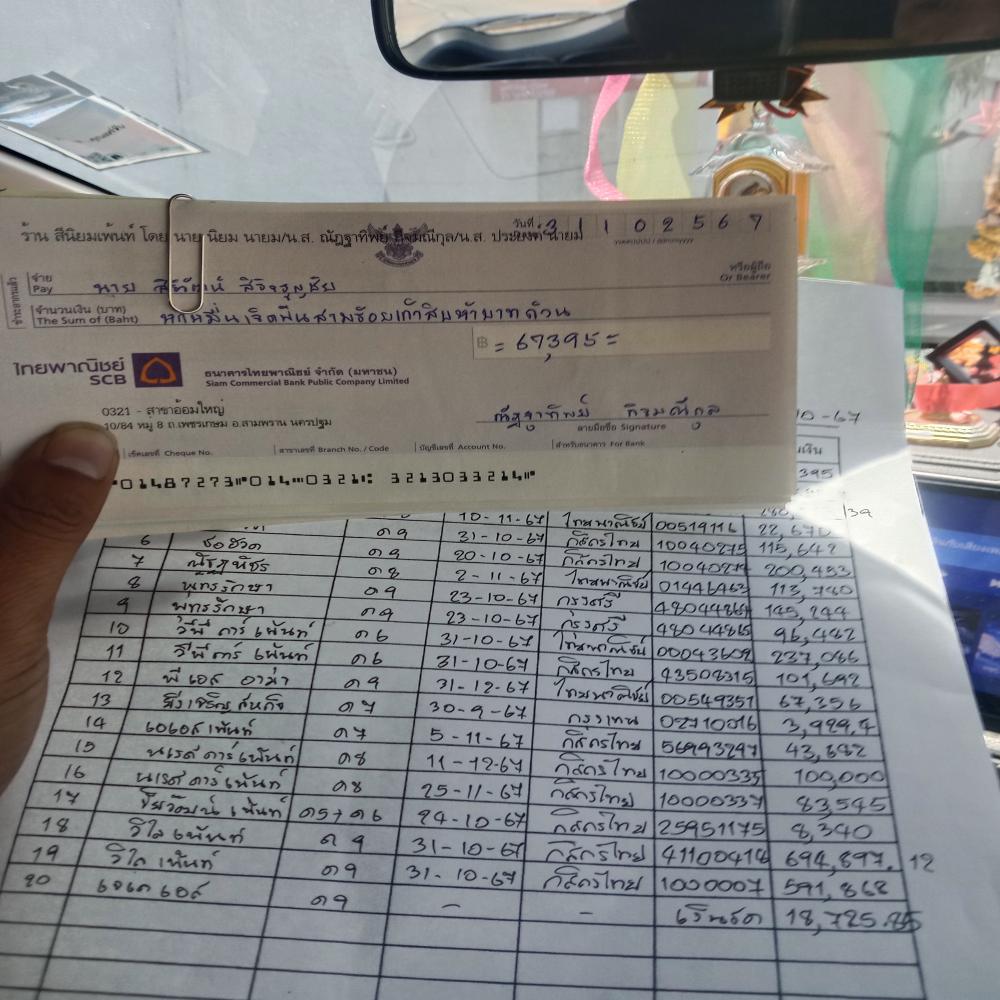 ร้าน สีนิยมเพ้นท์ โดย นาย นิยม นายม/น.ส. ณัฏฐาทิพย์ กิจมณีกุล/น.ส.
วันที่ 31102567
จ่าย
Pay นาย
หรือผู้ถือ
Or Bearer
จำนวนเงิน (บาท)
The Sum of (Baht) หกหมื่นเจ็ดพันสามร้อยเก้าสิบห้าบาทถ้วน
฿ = 67,395 =
ไทยพาณิชย์
SCB
ธนาคารไทยพาณิชย์ จำกัด (มหาชน)
Siam Commercial Bank Public Company Limited
0321 - สาขาอ้อมใหญ่
10/84 หมู่ 8 ถ.เพชรเกษม อ.สามพราน นครปฐม
ณัฏฐาทิพย์ กิจมณีกุล
ลายมือชื่อ Signature
เช็คเลขที่ Cheque No. สาขาเลขที่ Branch No. / Code บัญชีเลขที่ Account No. สำหรับธนาคาร For Bank
01487273 014 0321 3213033214
-67
395
10-11-67 ไทยพาณิชย์ 00519116 22,670
6 ด9 31-10-67 กสิกรไทย 10040275 115,642
7 ณัฐภัชร ด9 20-10-67 กสิกรไทย 200,453
8 พุทธรักษา ด8 2-11-67 ไทยพาณิชย์ 01446463 113,780
9 พุทธรักษา ด9 23-10-67 กรุงศรี 48044864 145,244
10 วีพี คาร์ เพ้นท์ ด9 23-10-67 กรุงศรี 48044865 96,482
11 วีพี คาร์ เพ้นท์ ด6 31-10-67 ไทยพาณิชย์ 00043602 237,086
12 พี เอส อาม่า ด6 31-10-67 กสิกรไทย 43508315 101,692
13 ด9 31-12-67 ไทยพาณิชย์ 00549351 67,356
14 เอเอสเพ้นท์ ด7 30-9-67 กรุงเทพ 02710016
15 นเรศ คาร์ เพ้นท์ ด7 5-11-67 กสิกรไทย 56993297 43,682
16 นเรศ คาร์ เพ้นท์ ด8 11-12-67 กสิกรไทย 10000335 100,000
17 ชัยวัฒน์ เพ้นท์ ด8 25-11-67 กสิกรไทย 10000337 83,545
18 วิไล เพ้นท์ ด5+ด6 24-10-67 กสิกรไทย 25951175 8,340
19 วิไล เพ้นท์ ด9 31-10-67 กสิกรไทย 41100414 694,897. 12
20 เอเค เอส ด9 31-10-67 กสิกรไทย 1000007 591,868
ด9 - - เงินสด 18,725.85